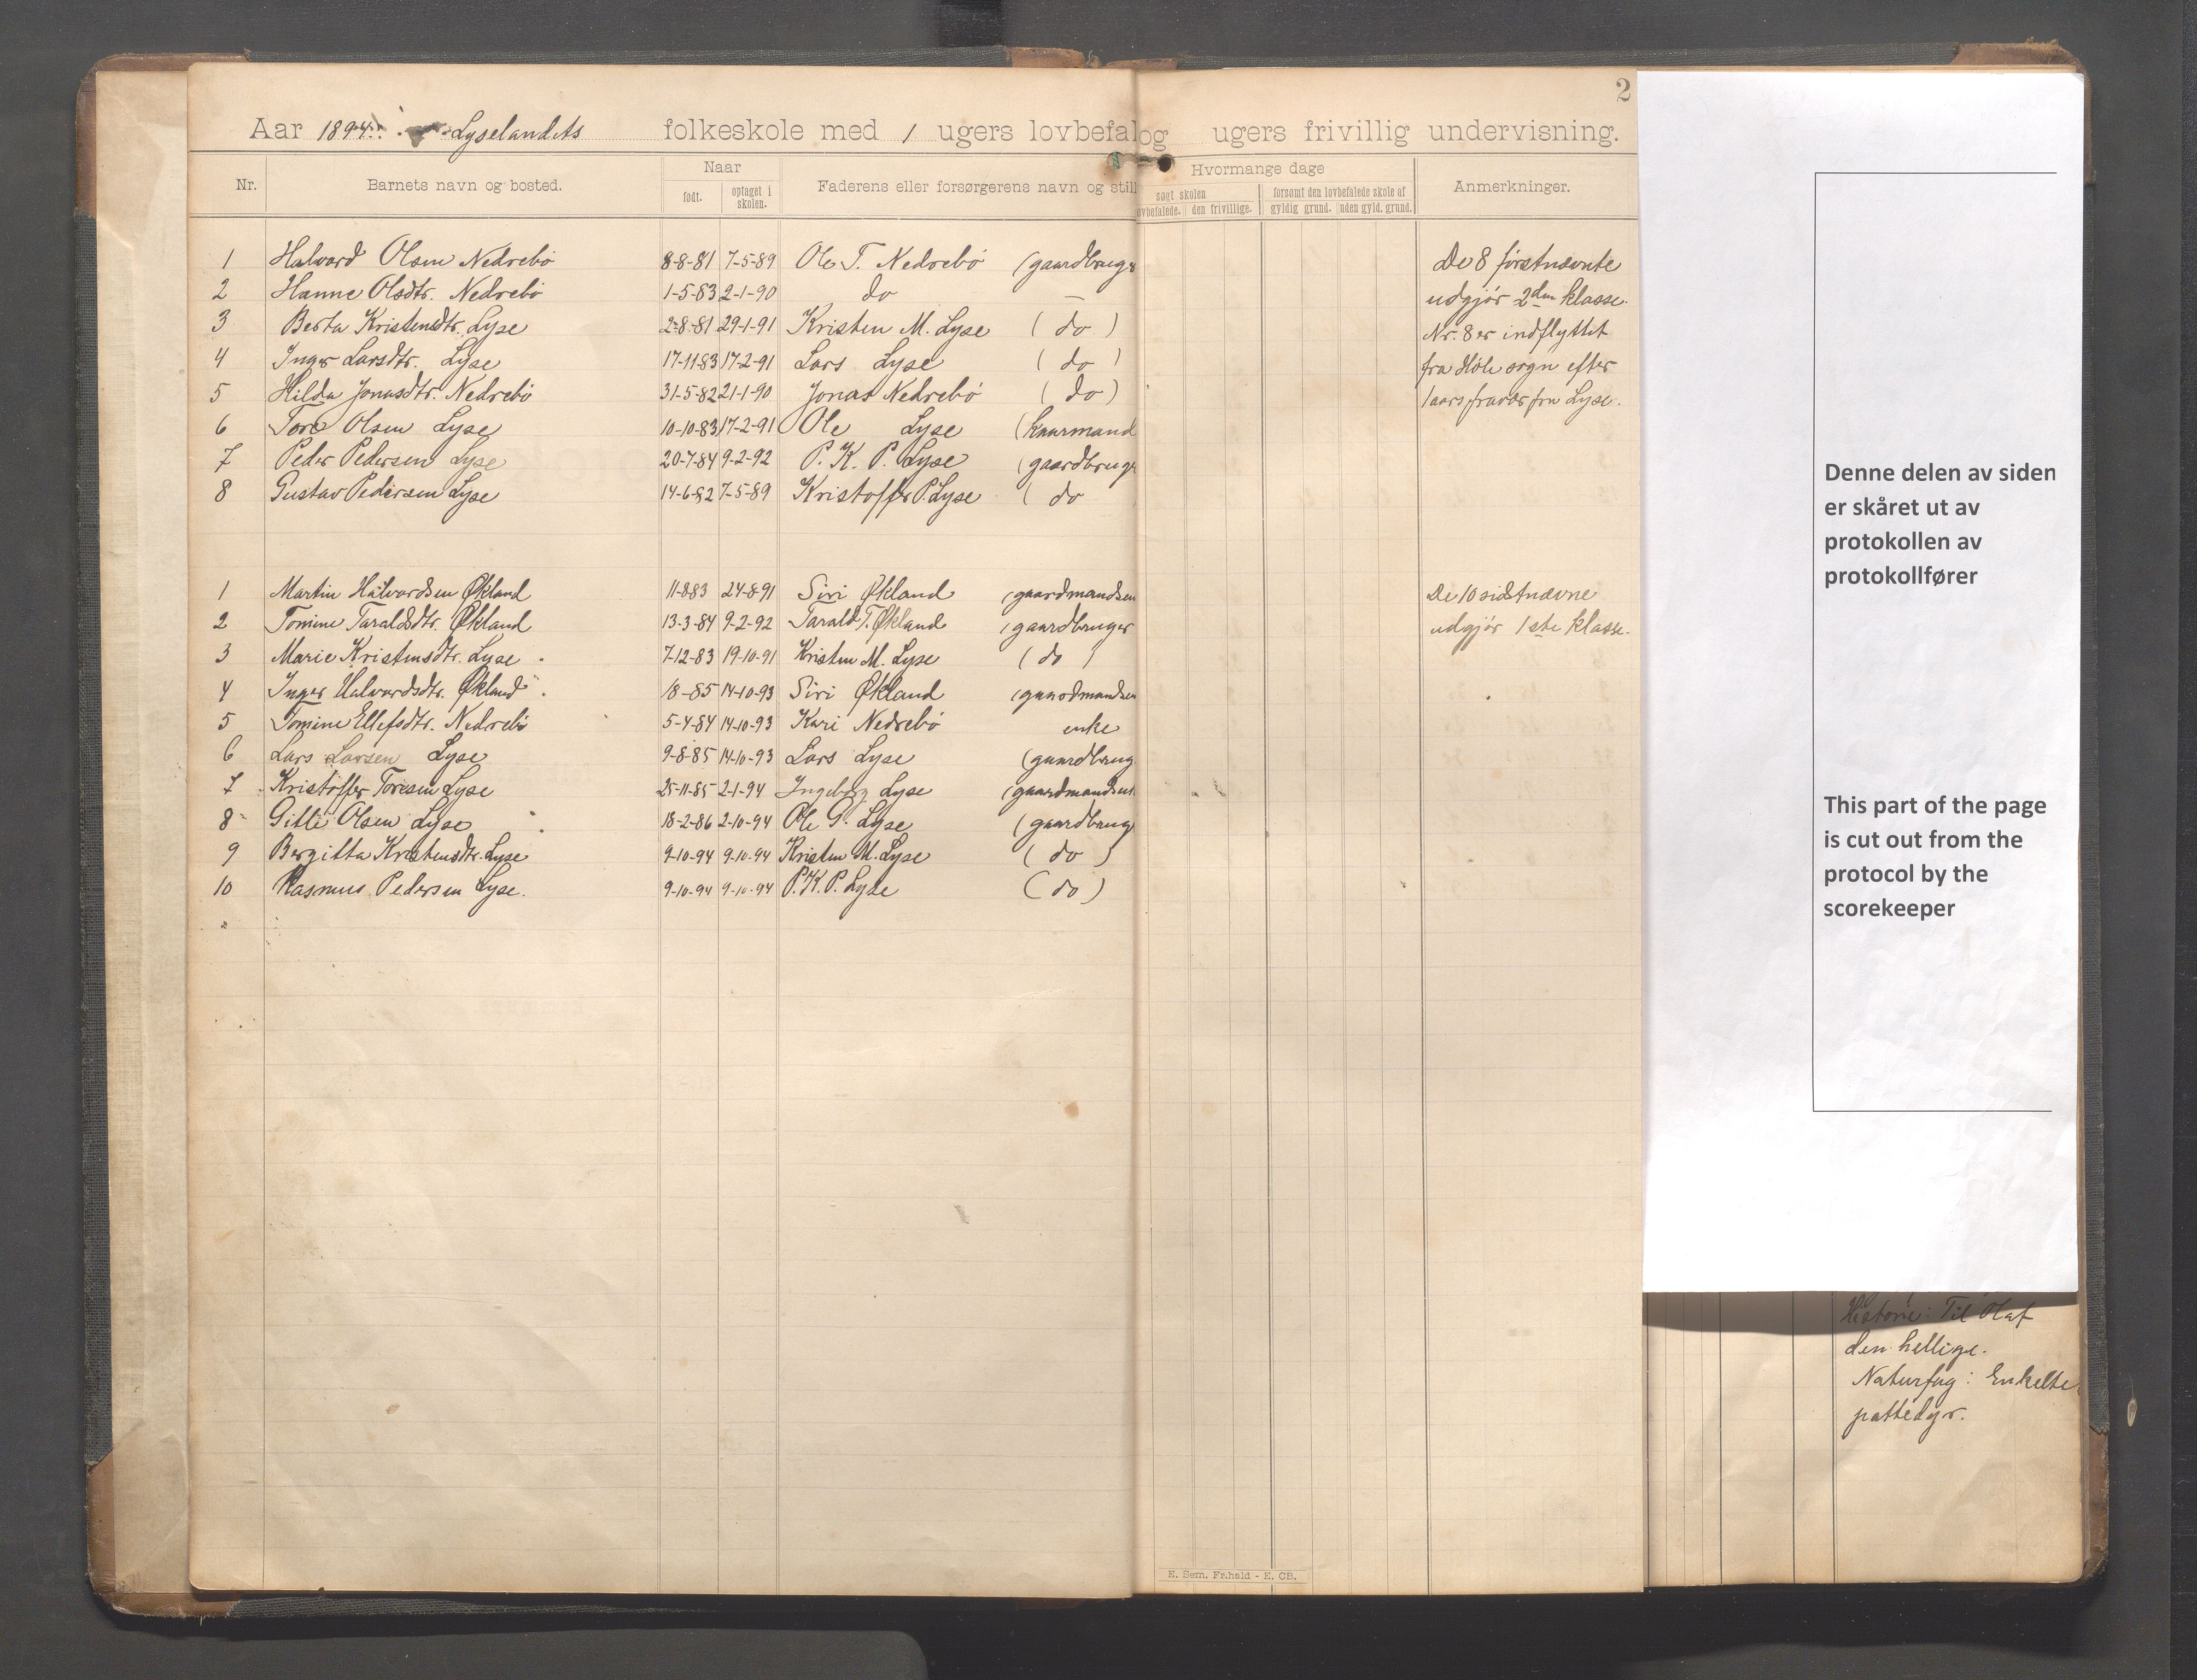 2
Aar 1894. Lyselandets folkeskole med 1 ugers lovbefal og ugers frivillig undervisning.
Nr. Barnets navn og bosted. Naar født. optaget i skolen. Faderens eller forsørgerens navn og still Hvormange dage søgt skolen ovbefalede. den frivillige. forsømt den lovbefalede skole af gyldig grund. uden gyld. grund. Anmerkninger.
1 Halvard Olsen Nedrebö 8-8-81 7-5-89 Ole T. Nedrebö (gaardbruger De 8 förstnævnte
2 Hanne Olsdtr. Nedrebö 1-5-83 2-1-90 do — udgjör 2den klasse.
3 Berta Kristensdtr. Lyse 2-8-81 29-1-91 Kristen M. Lyse ( do ) Nr. 8 er indflyttet
4 Inger Larsdtr. Lyse 17-11-83 17-2-91 Lars Lyse ( do ) fra Höle sogn efter
5 Hilda Jonasdtr. Nedrebö 31-5-82 21-1-90 Jonas Nedrebö ( do ) 1 aars fravær fra Lyse.
6 Tore Olsen Lyse 10-10-83 17-2-91 Ole Lyse (kaarmand
7 Peder Pedersen Lyse 20-7-84 9-2-92 P. K. P. Lyse (gaardbruge
8 Gustav Pedersen Lyse 14-6-82 7-5-89 Kristoffer P. Lyse ( do
1 Martin Halvardsen Økland 11-8-83 24-8-91 Siri Økland (gaardmandsen De 10 sidstnævne
2 Tomine Taraldsdtr. Økland 13-3-84 9-2-92 Tarald T. Økland (gaardbruger udgjör 1ste klasse.
3 Marie Kristensdtr. Lyse 7-12-83 19-10-91 Kristen M. Lyse ( do )
4 Inger Halvardsdtr. Økland 18-85 14-10-93 Siri Økland (gaardmandsen
5 Tomine Ellefsdtr. Nedrebö 5-4-84 14-10-93 Kari Nedrebö enke
6 Lars Larsen Lyse 9-8-85 14-10-93 Lars Lyse (gaardbrug
7 Kristoffer Toresen Lyse 25-11-85 2-1-94 Ingeborg Lyse (gaardmandsen
8 Gitle Olsen Lyse 18-2-86 2-10-94 Ole G. Lyse (gaardbrug
9 Bergitta Kristensdtr. Lyse 9-10-94 9-10-94 Kristen M. Lyse ( do )
10 Rasmus Pedersen Lyse. 9-10-94 9-10-94 P. K. P. Lyse ( do )
E. Sem. Fr.hald - E. CB.
Denne delen av siden
er skåret ut av
protokollen av
protokollfører
This part of the page
is cut out from the
protocol by the
scorekeeper
Historie: Til Olaf
den hellige.
Naturfag: Enkelte
pattedyr.